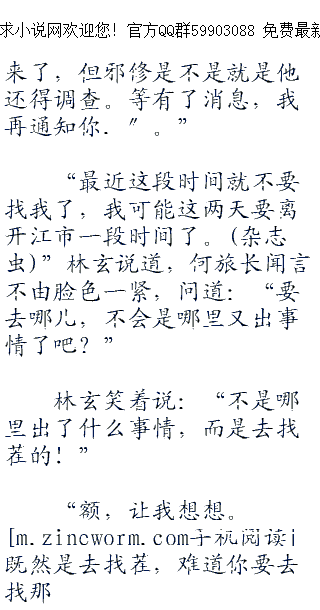 求小说网欢迎您! 官方QQ群59903088 免费最新
来了，但邪修是不是就是他
还得调查。等有了消息，我
再通知你．〞。”
“最近这段时间就不要
找我了，我可能这两天要离
开江市一段时间了。(杂志
虫)”林玄说道，何旅长闻言
不由脸色一紧，问道：“要
去哪儿，不会是哪里又出事
情了吧？”
林玄笑着说：“不是哪
里出了什么事情，而是去找
茬的！”
“额，让我想想。
[m.zincworm.com手机阅读]
既然是去找茬，难道你要去
找那